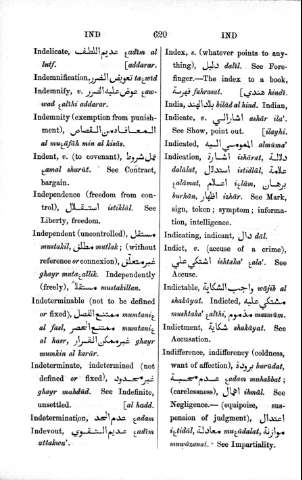 IND 620 IND
Indelicate, عديم اللطف ạadîm al
lutf. [addarar.
Indemnification, تعويض الضرر taạwîd
Indemnify, v. عوض عليه الضرر ạaw-
wad ạalihi addarar.
Indemnity (exemption from punish-
ment), المعافاه من القصاص
al muạâfâh min al kisâs.
Indent, v. (to covenant), عمل شروط
ạamal shurût. See Contract,
bargain.
Independence (freedom from con-
trol), استقلال istiklâl. See
Liberty, freedom.
Independent (uncontrolled), مستقل
mustakil, مطلق mutlak; (without
reference or connexion), غير متعلق
ghayr mutaạallik. Independently
(freely), مستقلاً mustakillan.
Indeterminable (not to be defined
or fixed), ممتنع الفصل mumtaniạ
al fasl, ممتنع الحصر mumtaniạ
al hasr, غير ممكن القرار ghayr
mumkin al karâr.
Indeterminate, indetermined (not
defined or fixed), غير محدود
ghayr mahdûd. See Indefinite,
unsettled. [al hadd.
Indetermination, عدم الحد ạadam
Indevout, عديم التقوى ạadîm
attakwa'.
Index, s. (whatever points to any-
thing), دليل delîl. See Fore-
finger.—The index to a book,
فهرسة fuhrasat. [hindi هندي
India, بلاد الهند bilâd al hind. Indian,
Indicate, v. اشار الى ashâr ila'.
See Show, point out. [ilayhi.
Indicated, المومى اليه almûma'
Indication, اشارة ishârat, دلالة
dalâlat, استدلال istidlâl, علامة
ạalâmat, اعلام iạlâm, برهان
burhân, اظهار ishâr. See Mark,
sign, token; symptom; informa-
tion, intelligence.
Indicating, indicant, دال dâl.
Indict, v. (accuse of a crime),
اشتكى على ishtaka' ạala'. See
Accuse.
Indictable, واجب الشكاية wâjib al
shakâyat. Indicted, مشتكي عليه
mushtaka' ạalihi, مذموم mazmûm.
Indictment, شكاية shakâyat. See
Accusation.
Indifference, indifferency (coldness,
want of affection), برودة burûdat,
عدم محبة ạadam muhabbat;
(carelessness), اهمال ihmâl. See
Negligence.— (equipoise, sus-
pension of judgment), اعتدال
iạtidâl, معادلة muạâdalat, موازنة
muwâzanat. See Impartiality.